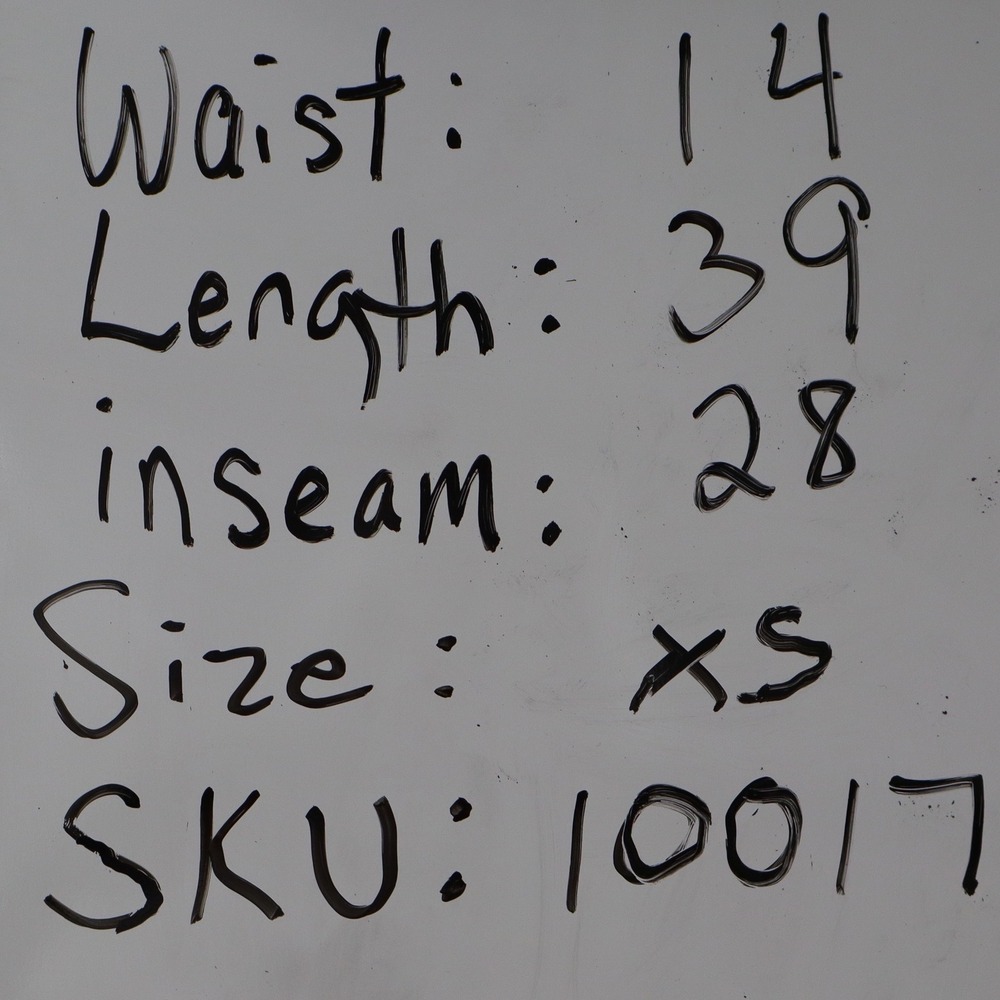 Waist: 14
Length: 39
inseam: 28
Size: XS
SKU: 10017